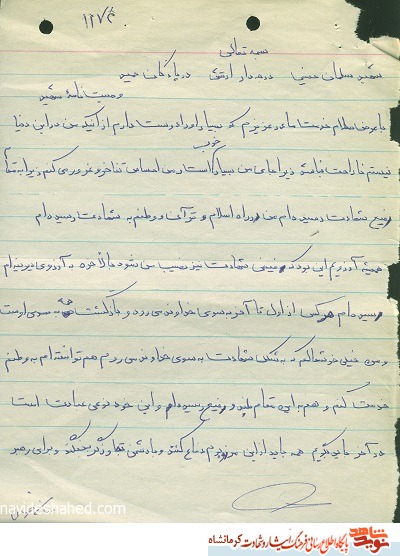 ۱۱۷۴
بسمه تعالی
شهید سلمان حسینی درجه دار ارتش در پادگان حمید
وصیت نامه شهید
با عرض سلام خدمت مادر عزیزم که بسیار او را دوست دارم از اینکه من در این دنیا
نیستم ناراحت نباشید زیرا جای من بسیار خوب است و من احساس تفاخر و غرور می کنم زیرا به مقام
رفیع شهادت رسیده ام من در راه اسلام و قرآن و وطنم به شهادت رسیده ام
همیشه آرزویم این بود که فیض شهادت نیز نصیب من شود حالا خوب به آرزوی دیرینه ام
رسیده ام هر کس از اول تا آخر به سوی خداوند می رود و بازگشت همه به سوی اوست
و من خیلی خوشحالم که به شکل شهادت به سوی خداوند می روم هم توانسته ام به وطنم
خدمت کنم و هم به این مقام بلند و رفیع رسیده ام و این خود نوعی عبادت است
در آخر باید بگویم همه باید از این مرز و بوم دفاع کنند و با دشمن بجنگند و برای رهبر
navideshahed.com
نوید شاهد
پایگاه اطلاع رسانی فرهنگ ایثار و شهادت کرمانشاه